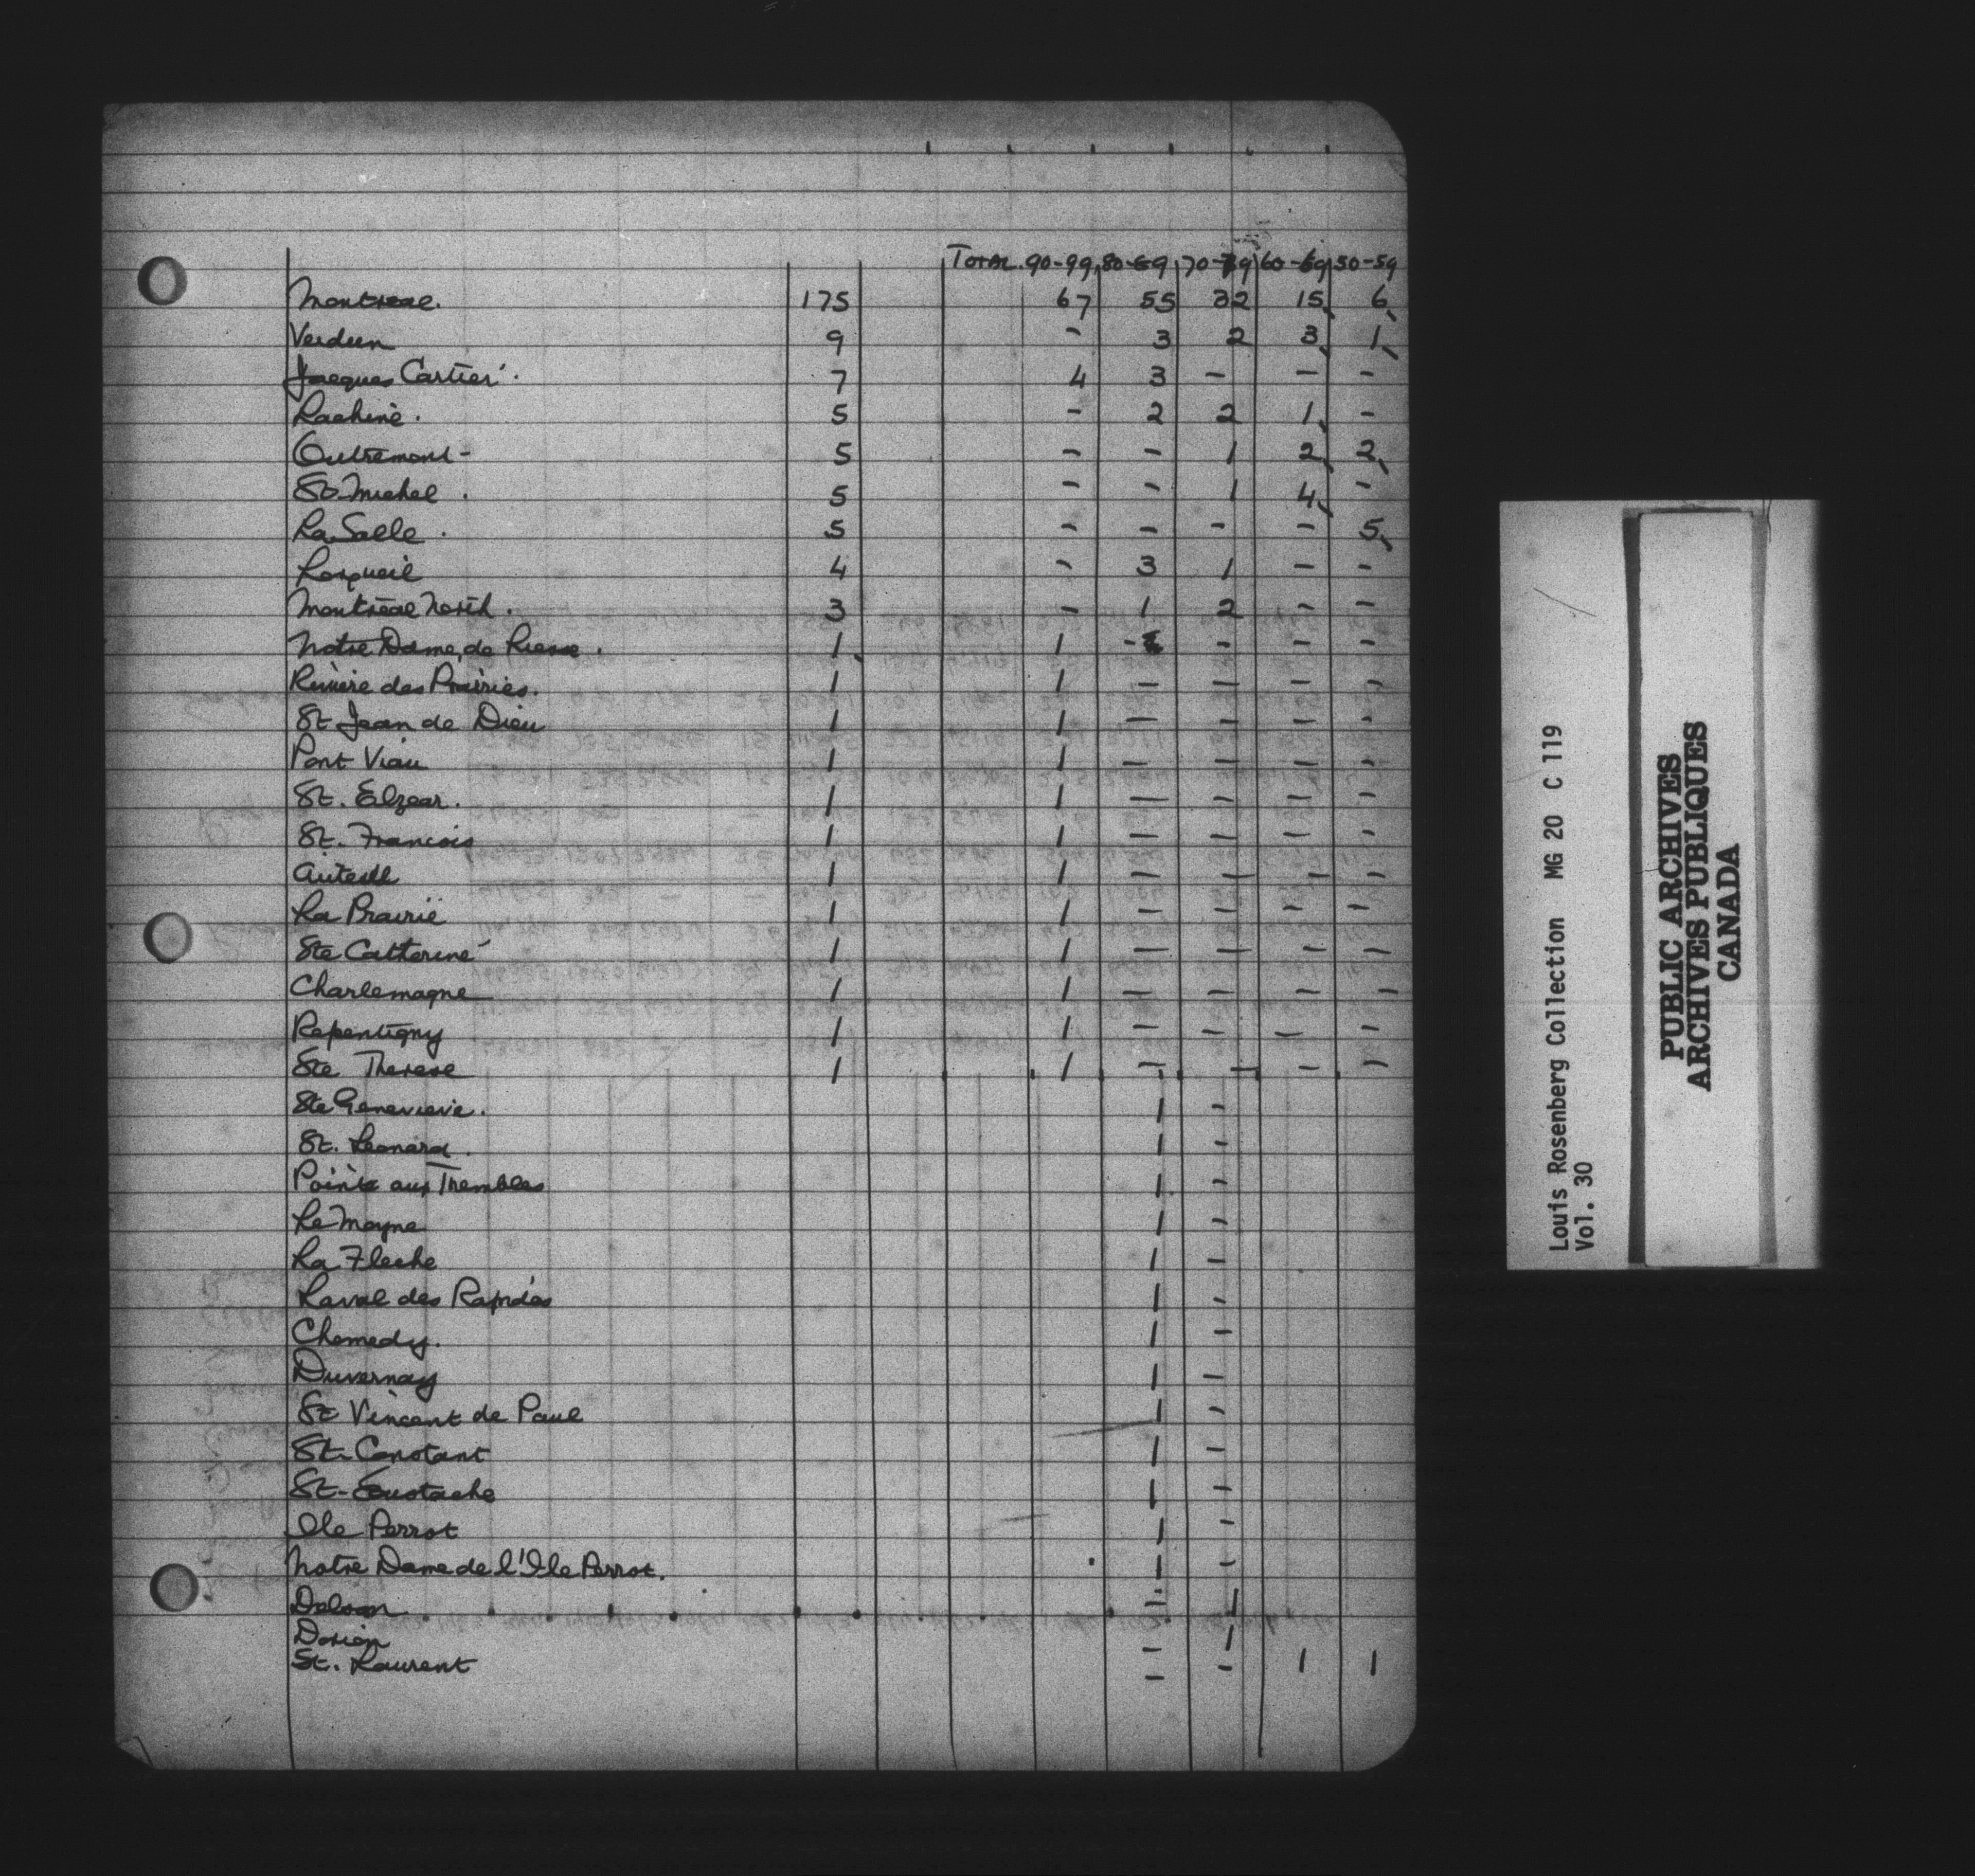 Total 90-99 80-89 70-79 60-69 50-59
Montreal. 175 67 55 32 15 6
Verdun 9 - 3 2 3 1
Jacques Cartier. 7 4 3 - - -
Lachine. 5 - 2 2 1 -
Outremont- 5 - - 1 2 2
St Michel. 5 - - 1 4 -
La Salle. 5 - - - - 5
Longueuil 4 - 3 1 - -
Montreal North. 3 - 1 2 - -
Notre Dame de 1 1 - - - -
Riviere des Prairies. 1 1 - - - -
St Jean de Dieu 1 1 - - - -
Pont Viau 1 1 - - - -
St. Elzear. 1 1 - - - -
St. Francois 1 1 - - - -
Auteuil 1 1 - - - -
La Prairie 1 1 - - - -
Ste Catherine 1 1 - - - -
Charlemagne 1 1 - - - -
Repentigny 1 1 - - - -
Ste Therese 1 1 - - - -
Ste Genevieve. 1 -
St. Leonard. 1 -
Pointe aux Trembles 1 -
Le Moyne 1 -
La Fleche 1 -
Laval des Rapides 1 -
Chomedy. 1 -
Duvernay 1 -
St Vincent de Paul 1 -
St. Constant 1 -
St-Eustache 1 -
Ile Perrot 1 -
Notre Dame de l'Ile Perrot. 1 -
Delson - 1
Dorion - 1
St. Laurent - - 1 1
Louis Rosenberg Collection MG 20 C 119
Vol. 30
PUBLIC ARCHIVES
ARCHIVES PUBLIQUES
CANADA